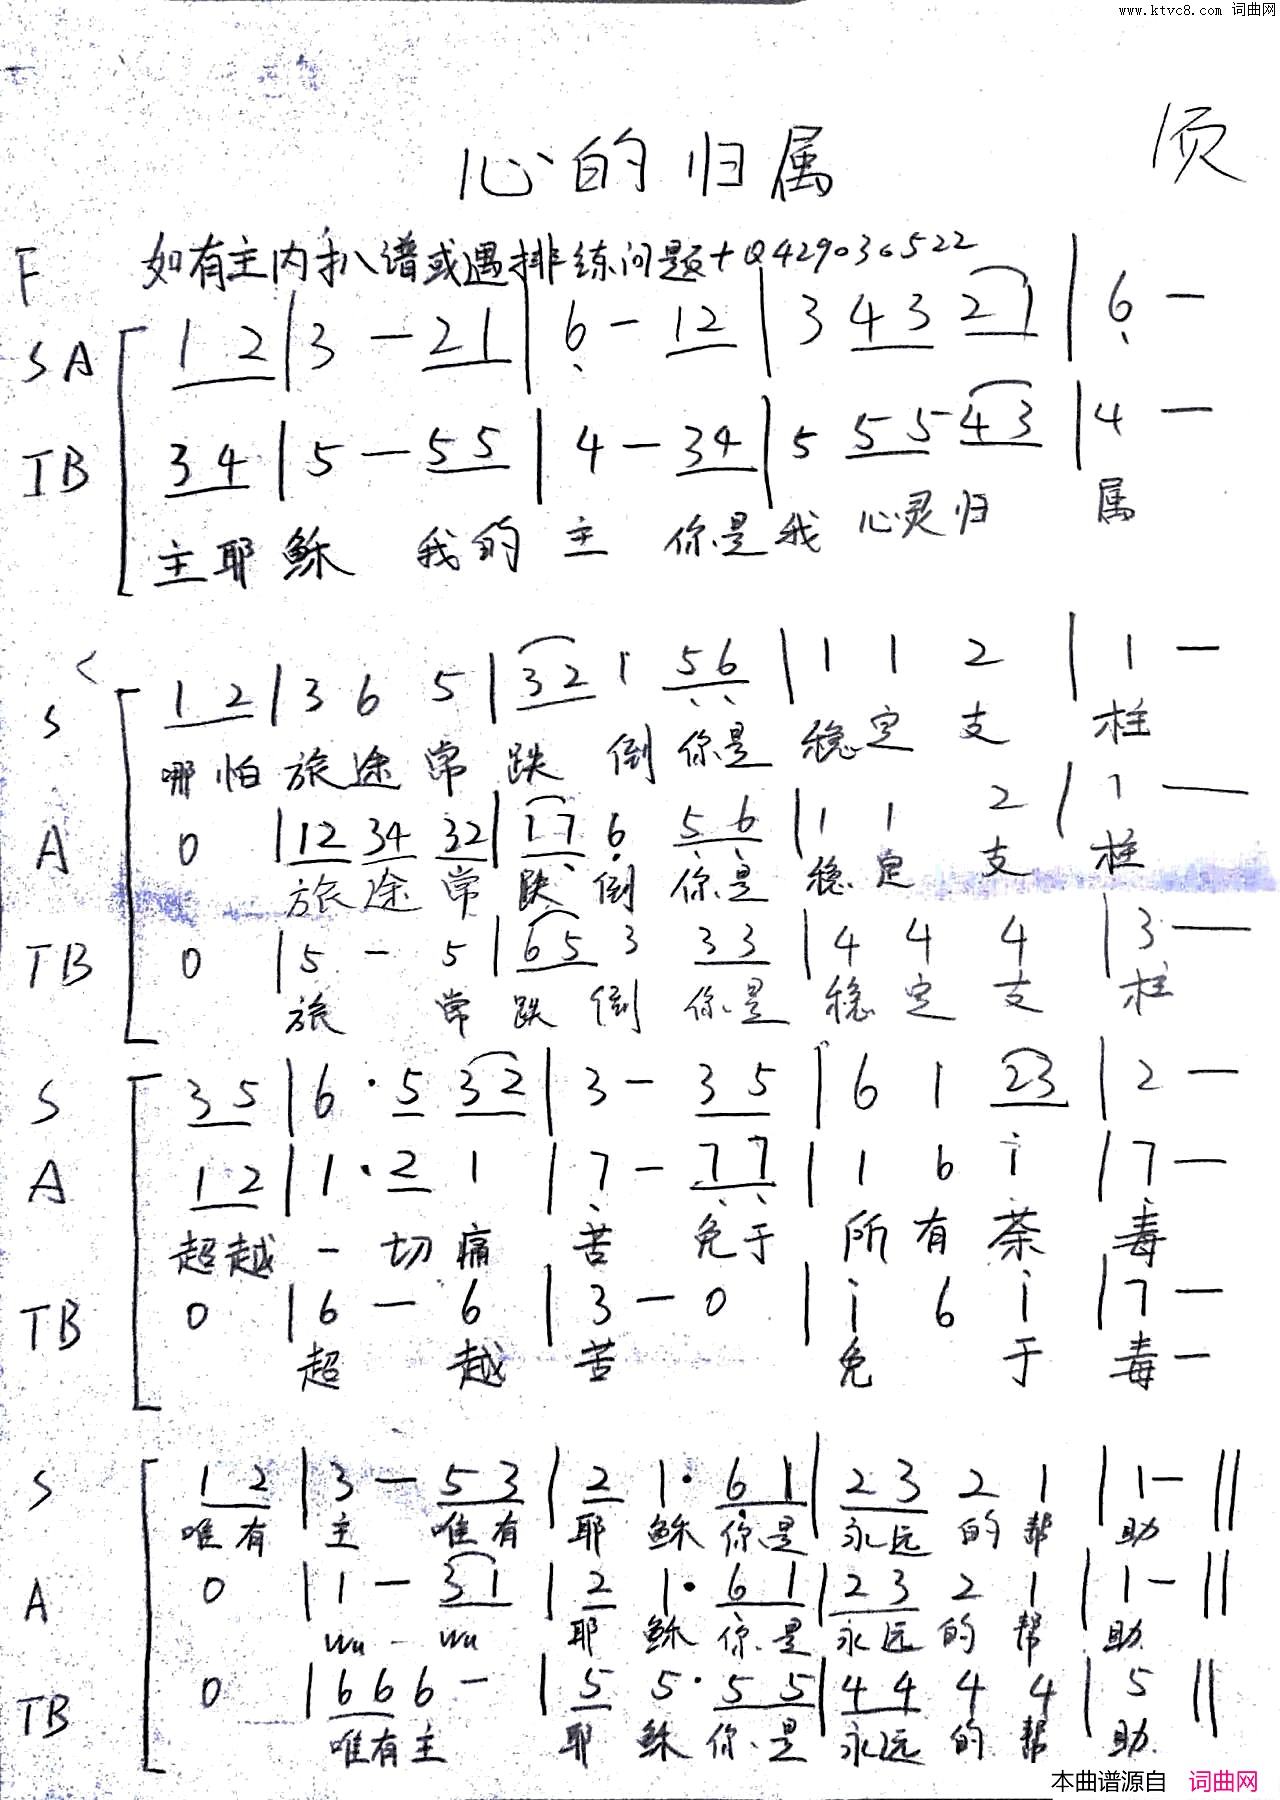 www.ktvc8.com 词曲网
心的归属
1页
F 如有主内扒谱或遇排练问题+Q429036522
SA 1 2 | 3 – 2 1 | 6 – 1 2 | 3 4 3 2 1 | 6 –
TB 3 4 | 5 – 5 5 | 4 – 3 4 | 5 5 5 4 3 | 4 –
主耶稣 我的主 你是我 心灵归 属
S 1 2 | 3 6 5 | 3 2 1 5 6 | 1 1 2 | 1 –
哪怕旅途常跌倒 你是 稳定支柱
A 0 | 1 2 3 4 3 2 | 1 7 6 5 6 | 1 1 2 | 1 –
旅途常跌倒 你是 稳定支柱
TB 0 | 5 – 5 | 6 5 3 3 3 | 4 4 4 | 3 –
旅 常跌倒 你是 稳定支柱
S 3 5 | 6 · 5 3 2 | 3 – 3 5 | 6 1 2 3 | 2 –
A 1 2 | 1 · 2 1 | 7 – 7 7 | 1 6 i | 7 –
超越一切痛苦 免于所有荼毒
TB 0 | 6 – 6 | 3 – 0 | i 6 i | 7 –
超 越 苦 免 于 毒 –
S 1 2 | 3 – 5 3 | 2 1 · 6 1 | 2 3 2 1 | 1 – ||
唯有 主 唯有 耶 稣 你是 永远的帮 助
A 0 | 1 – 3 1 | 2 1 · 6 1 | 2 3 2 1 | 1 – ||
wu – wu 耶 稣 你是 永远的帮 助
TB 0 | 6 6 6 – | 5 5 · 5 5 | 4 4 4 4 | 5 ||
唯有主 耶 稣 你是 永远的帮 助
本曲谱源自 词曲网